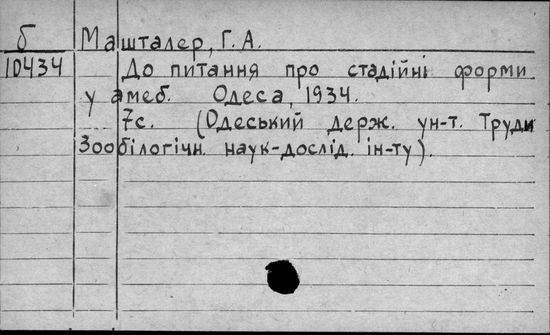 б Машталер, Г. А.
10434 До питання про стадійні форми
у амеб. Одеса, 1934.
7с. (Одеський держ. ун-т. Труди
Зообілогічн. наук-дослід. ін-ту).